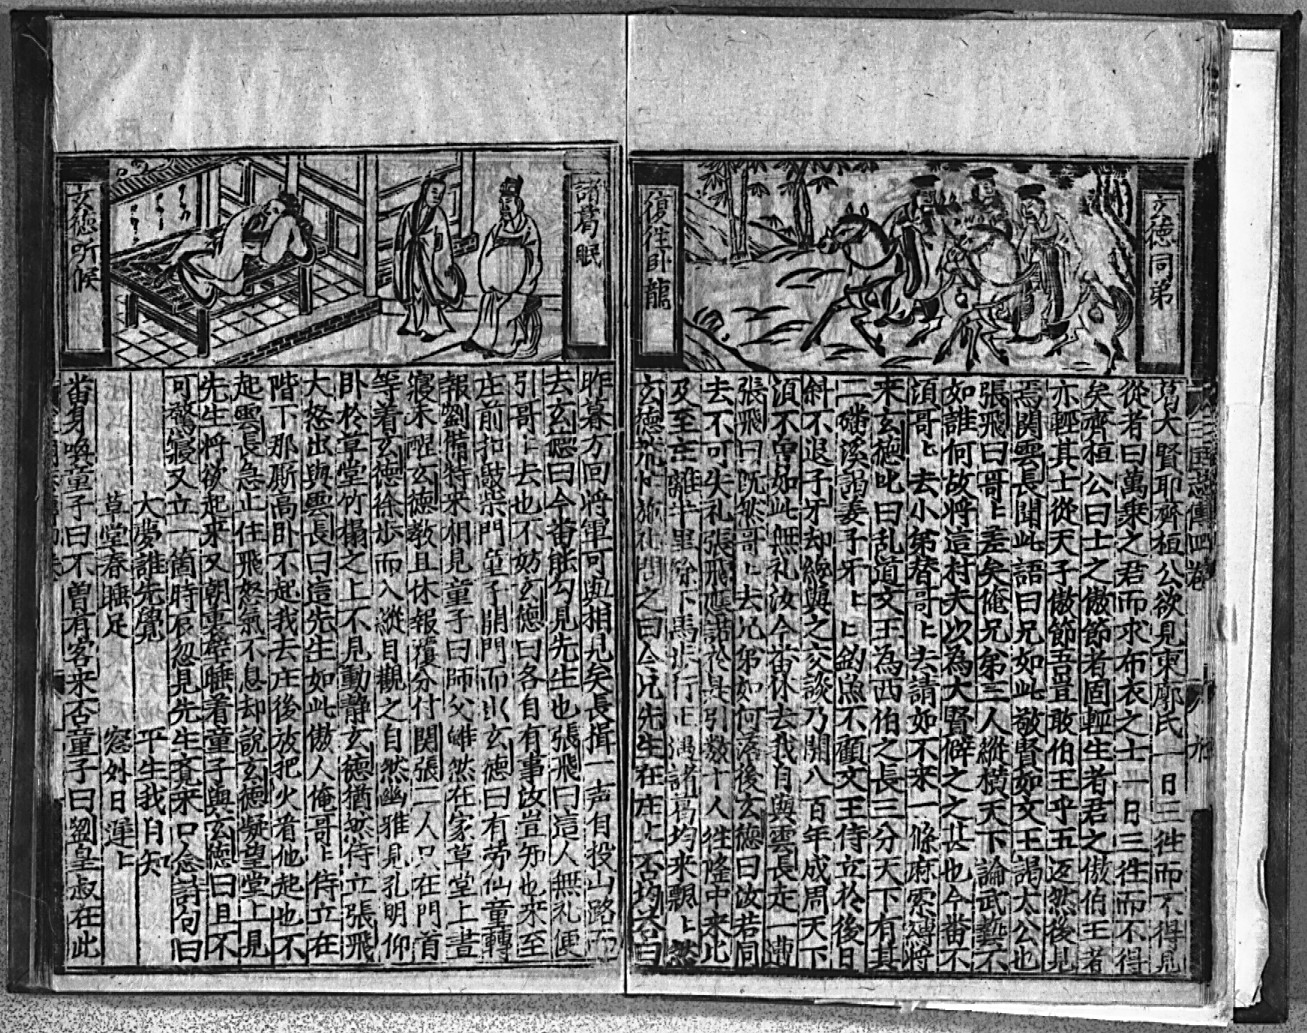 玄德同弟
復往卧龍
葛大賢耶齊桓公欲見東廓氏一日三往而不得見
從者曰萬乘之君而求布衣之士一日三往而不得
矣齊桓公曰士之傲節者固輕生者君之傲伯王者
亦輕其士從天子傲節吾豈敢伯王乎五返然後見
焉関雲長聞此語曰兄如此敬賢如文王謁太公也
張飛曰哥〻差矣俺兄弟三人縱橫天下論武藝不
如誰何故將這村夫以為大賢僻之之甚也今番不
須哥〻去小弟替哥〻去請如不來一條麻索縛將
來玄德叱曰乱道文王為西伯之長三分天下有其
二磻溪謁姜子牙〻〻釣魚不顧文王侍立於後日
斜不退子牙却纔與之交談乃開八百年成周天下
須不曾如此無礼汝今番休去我自與雲長走一遭
張飛曰既然哥〻去兄弟如何落後玄德曰汝若同
去不可失礼張飛應諾於是引数十人往隆中來比
及至庄離半里餘下馬步行正遇諸葛均來飄〻然
玄德施礼問之曰令兄先生在庄上否均答曰
三國志傳四卷
諸葛眠
玄德听候
昨暮方回將軍可與相見矣長揖一声自投山路而
去玄德曰今番能勾見先生也張飛曰這人無礼便
引哥〻去也不妨玄德曰各自有事故豈知也來至
庄前扣敲柴門童子開門而出玄德曰有劳仙童轉
報劉備特來相見童子曰師父雖然在家草堂上晝
寢未醒玄德教且休報覆分付関張二人只在門首
等着玄德徐步而入縱目觀之自然幽雅見孔明仰
卧於草堂竹榻之上不見動静玄德猶然侍立張飛
大怒出與雲長曰這先生如此傲人俺哥〻侍立在
階下那厮高卧不起我去庄後放把火看他起也不
起雲長急止住飛怒氣不息却說玄德凝望堂上見
先生将欲起来又朝裏壁睡着童子與玄德曰且不
可驚寢又立一箇時辰忽見先生覚来口念詩句曰
大夢誰先覺 平生我自知
草堂春睡足 窓外日遲〻
畨身喚童子曰不曽有客来否童子曰劉皇叔在此